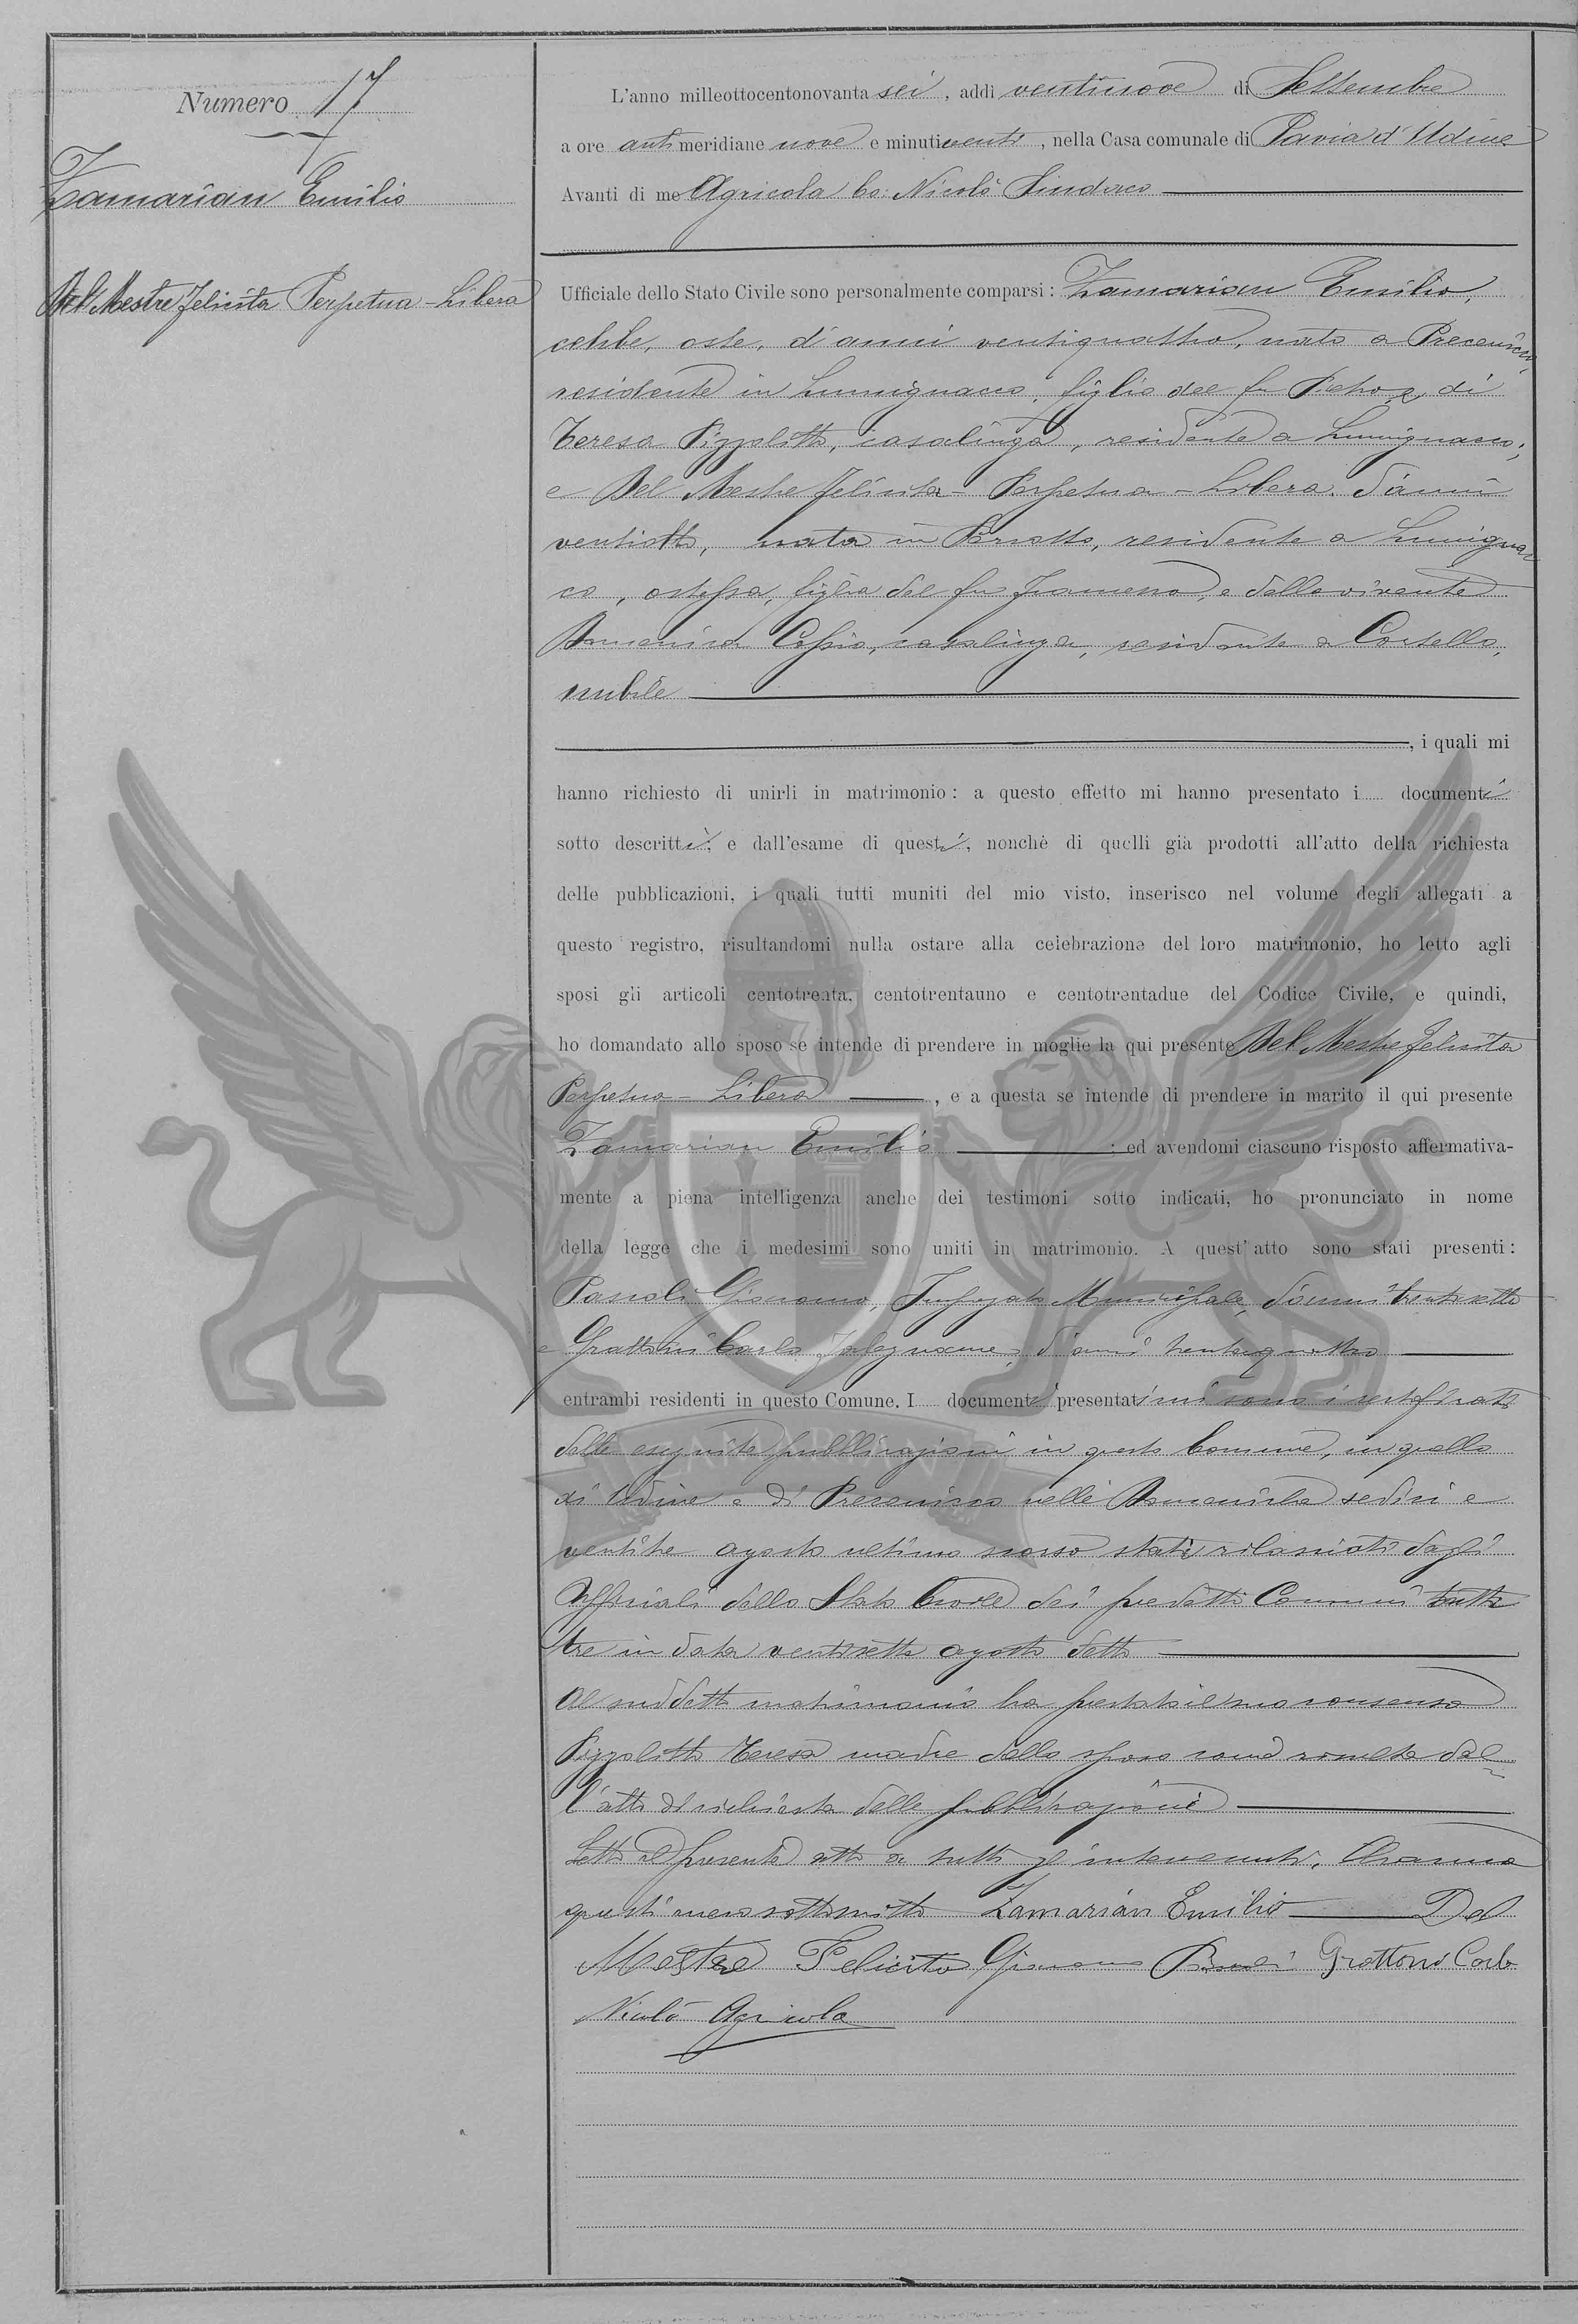 Numero 17
Zamarian Emilio
Del Mestre Felicita Perpetua-Libera
L'anno milleottocentonovanta sei, addì ventinove di Settembre
a ore antimeridiane nove e minuti venti, nella Casa comunale di Pavia d'Udine
Avanti di me Agricola Co: Nicolò Sindaco
Ufficiale dello Stato Civile sono personalmente comparsi: Zamarian Emilio,
celibe, oste, d'anni ventiquattro, nato a Precenicco,
residente in Lumignacco, figlio del fu Pietro e di
Teresa Pizzolitto, casalinga, residente a Lumignacco;
e Del Mestre Felicita-Perpetua-Libera d'anni
ventiotto, nata in, residente a Lumignac
co, ostessa, figlia del fu Francesco, e della vivente
Domenica Cossio, casalinga, residente a Cortello,
nubile
, i quali mi
hanno richiesto di unirli in matrimonio: a questo effetto mi hanno presentato i documenti
sotto descritti; e dall'esame di questi, nonchè di quelli già prodotti all'atto della richiesta
delle pubblicazioni, i quali tutti muniti del mio visto, inserisco nel volume degli allegati a
questo registro, risultandomi nulla ostare alla celebrazione del loro matrimonio, ho letto agli
sposi gli articoli centotrenta, centotrentauno e centotrentadue del Codice Civile, e quindi,
ho domandato allo sposo se intende di prendere in moglie la qui presente Del Mestre Felicita
Perpetua-Libera, e a questa se intende di prendere in marito il qui presente
Zamarian Emilio; ed avendomi ciascuno risposto affermativa-
mente a piena intelligenza anche dei testimoni sotto indicati, ho pronunciato in nome
della legge che i medesimi sono uniti in matrimonio. A quest'atto sono stati presenti:
Pascoli Giacomo, Impiegato Municipale, d'anni trentasette
e Grattoni Carlo falegname, d'anni trentaquattro
entrambi residenti in questo Comune. I documenti presentatimi sono i certificati
delle eseguite pubblicazioni in questo Comune, in quello
di Udine e di Precenicco nelle Domeniche sedici e
ventitre agosto ultimo scorso stati rilasciati dagli
Ufficiali dello Stato Civile dei predetti Comuni tutti
tre in data ventisette agosto detto
Al suddetto matrimonio ha prestato il suo consenso
Pizzolitto Teresa madre dello sposo come risulta dal=
l'atto di richiesta delle pubblicazioni
Letto il presente atto a tutti gl'intervenuti, l'hanno
questi meco sottoscritto Zamarian Emilio Del
Mestre Felicita Giacomo Pascoli Grattoni Carlo
Nicolò Agricola